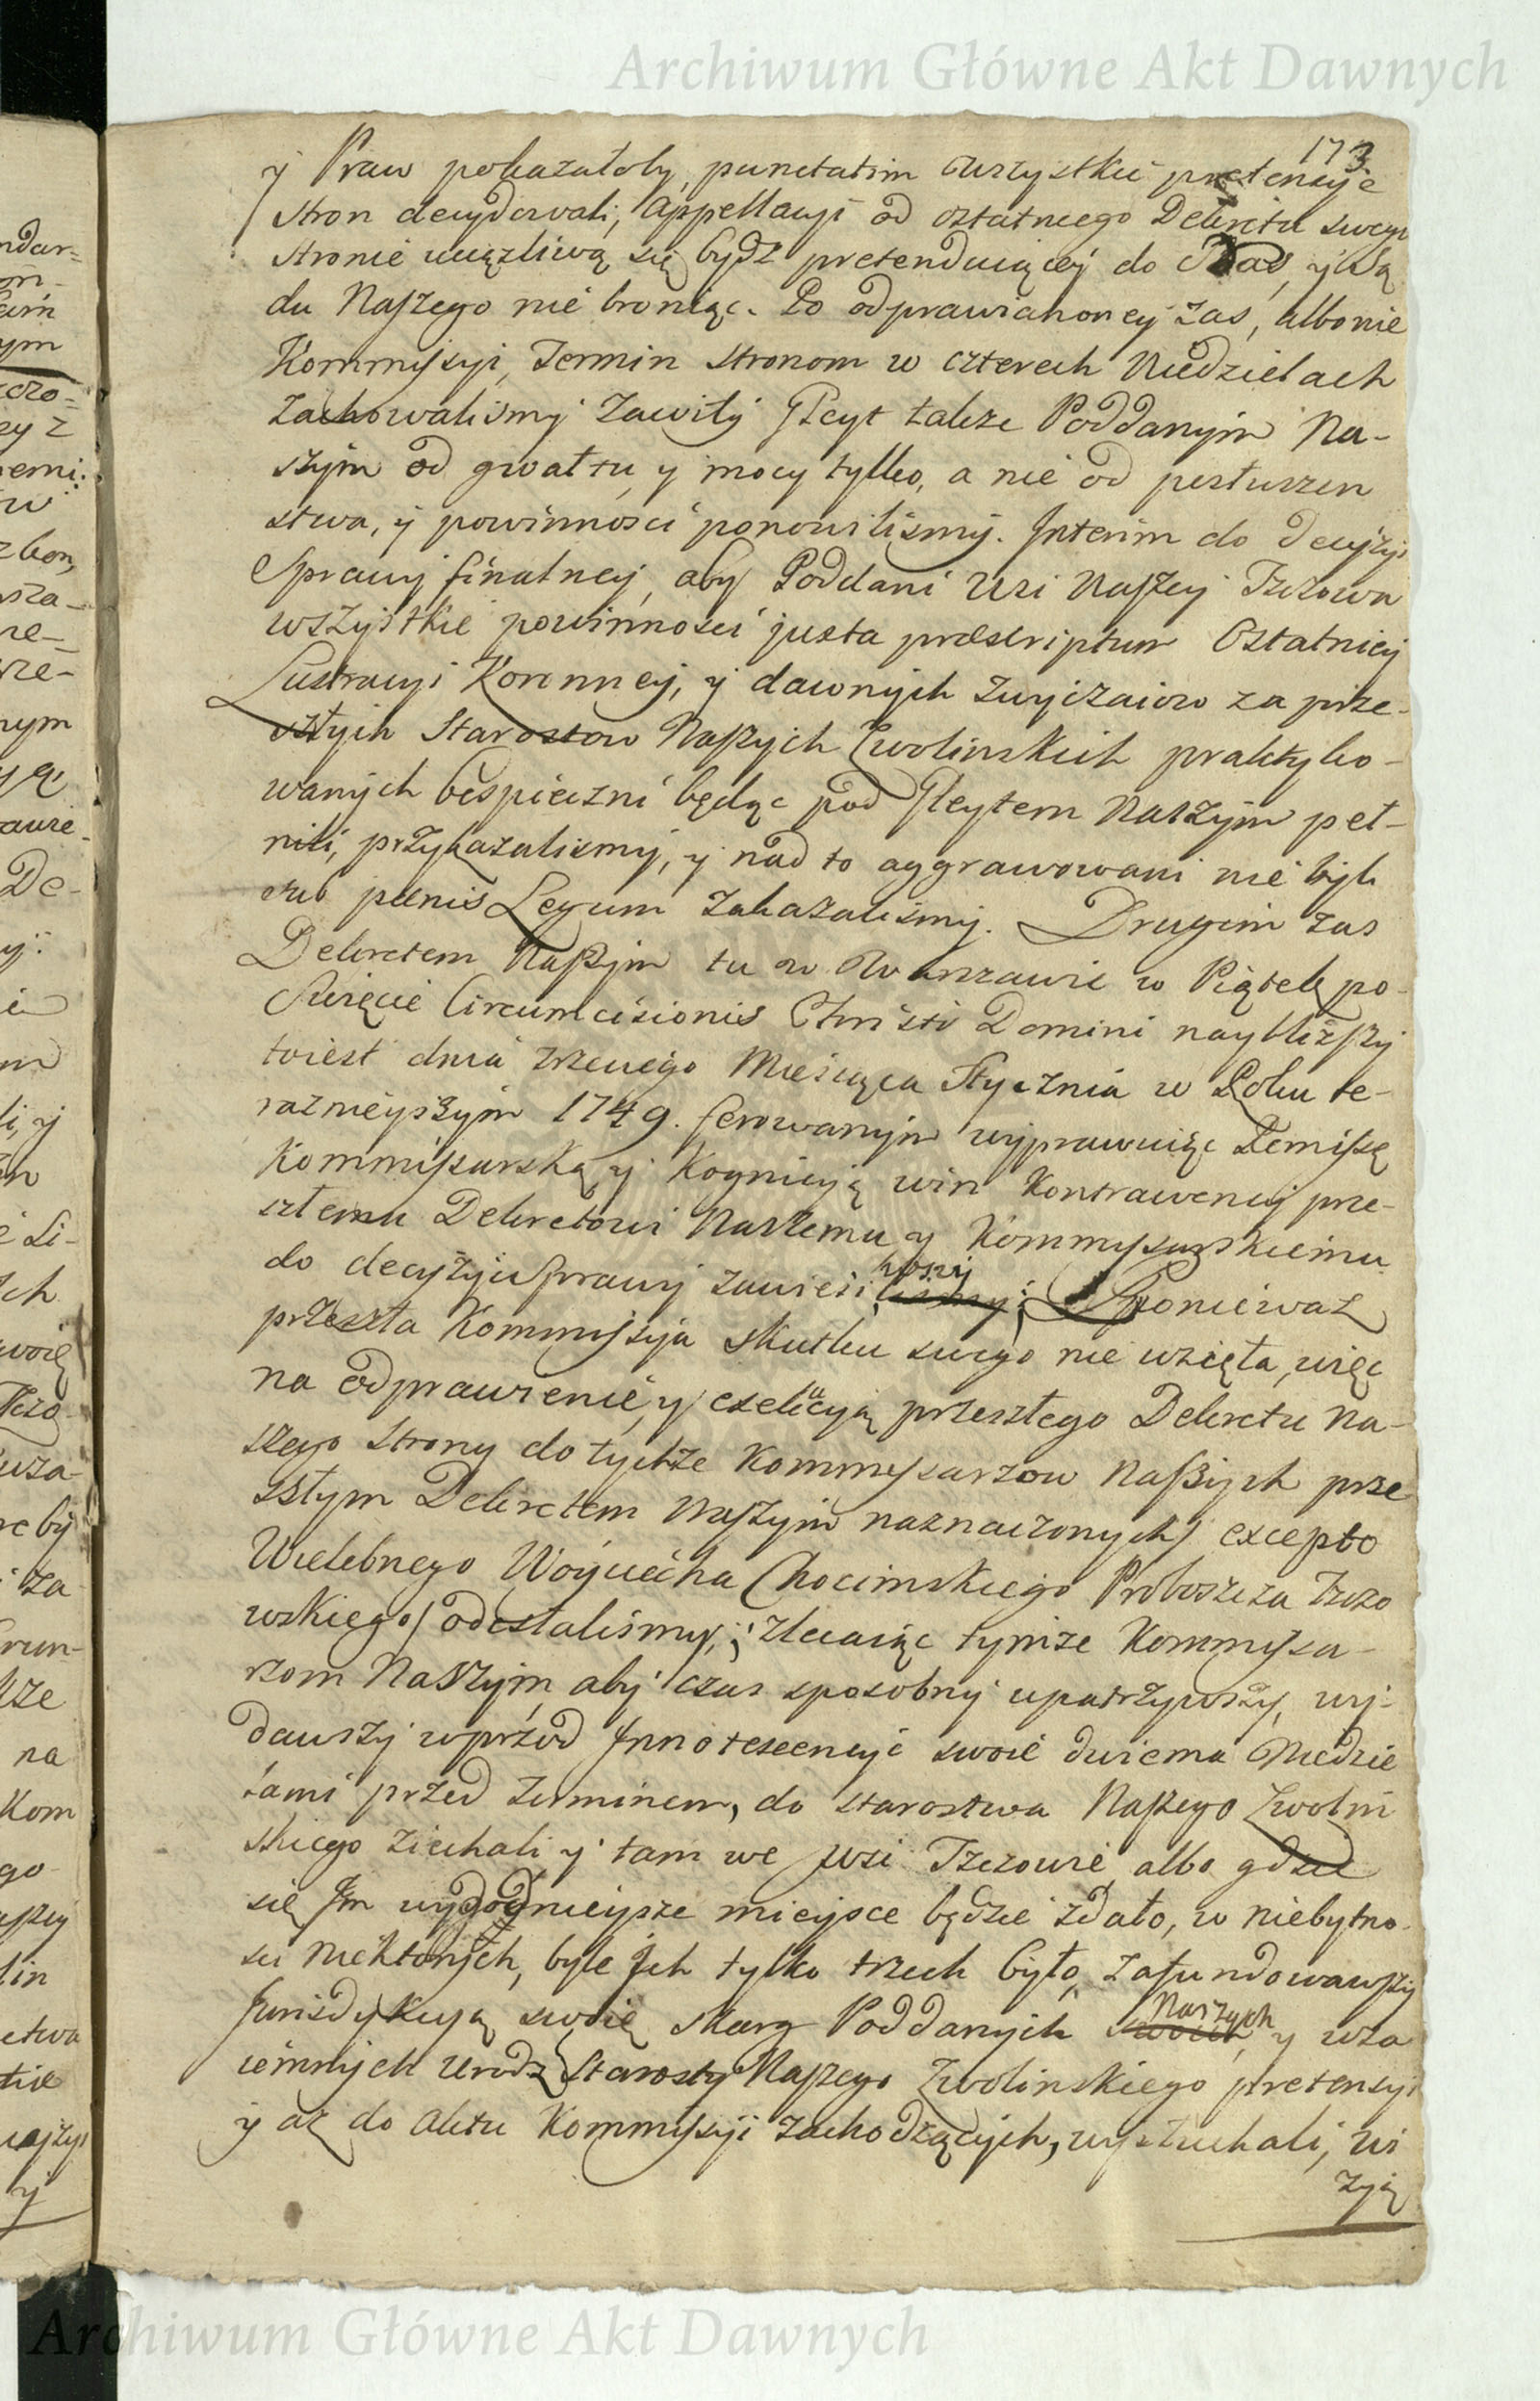 Archiwum Główne Akt Dawnych
173
y Praw pokazałoby, punctatim wszystkie pretensye
stron decydowali, Appellacyi od ostatniego Dekretu swego
stronie uciążliwą się bydź pretenduiącey do Nas, y Są
du Naszego nie broniąc. Po odprawioney zas, albo nie
Kommissyi, Termin stronom w czterech Niedzielach
zachowaliśmy zawity Gleyt także Poddanym Na-
szym od gwałtu y mocy tylko, a nie od posłuszen
stwa, y powinnosci ponowiliśmy. Interim do decyzyi
Sprawy finalney, aby Poddani Wsi Naszey Tczowa
wszystkie powinnosci juxta præscriptum Ostatniey
Lustracyi Koronney, y dawnych zwyczaiow za prze-
szłych Starostow Naszych Zwolinskich praktyko-
wanych bespieczni będąc pod Gleytem Naszym peł-
nili, przykazaliśmy, y nad to aggrawowani nie byli
sub pœnis Legum zakazaliśmy. Drugim zas
Dekretem Naszym tu w Warszawie w Piątek po
Swięcie Circumcisionis Christi Domini naybliższy
toiest dnia trzeciego Miesiąca Stycznia w Roku te-
raznieyszym 1749. ferowanym wyprawuiąc Remissę
Kommissarską, y Kognicyą win Kontrawencyi prze-
szłemu Dekretowi Naszemu y Kommissarskiemu
do decyzyi Sprawy zawiesiliśmy; Ponieważ
przeszła Kommissya skutku swego nie wzięła, więc
na odprawienie, y exekucyą przeszłego Dekretu Na-
szego strony do tychże Kommissarzow Naszych prze
szłym Dekretem Naszym naznaczonych excepto
Wielebnego Woyciecha Chocimskiego Proboszcza Tczo
wskiego odesłaliśmy, zlecaiąc tymże Kommissa-
rzom Naszym, aby czas sposobny upatrzywszy, wy-
dawszy wprzod Innotescencye swoie dwiema Niedzie
lami przed Terminem, do starostwa Naszego Zwolin
skiego ziechali y tam we Wsi Tczowie albo gdzie
się Im wygodnieysze mieysce będzie zdało, w niebytno-
sci niektorych, byle Jch tylko trzech było, zafundowawszy
Jurisdykcyą swoię skarg Poddanych swoich Naszych, y wza
iemnych Urodz Starosty Naszego Zwolinskiego pretensyi
y aż do Aktu Kommissyi zachodzących, wysłuchali, wi
zyą
Archiwum Główne Akt Dawnych